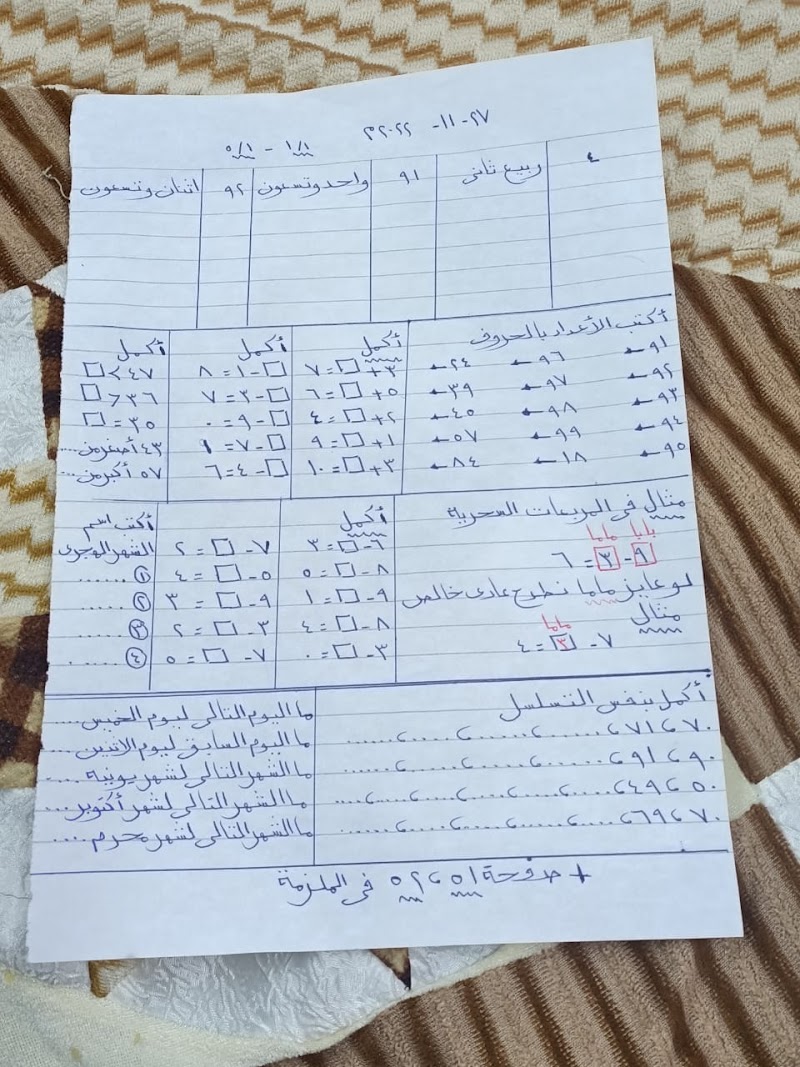 ٢٧-١١-٢٠٢٢م
١/١ - ٥/١
٤ ربيع ثانى ٩١ واحد وتسعون ٩٢ اثنان وتسعون
أكتب الأعداد بالحروف
٩١ ← ٩٦ ← ٢٤ ←
٩٢ ← ٩٧ ← ٣٩ ←
٩٣ ← ٩٨ ← ٤٥ ←
٩٤ ← ٩٩ ← ٥٧ ←
٩٥ ← ١٨ ← ٨٤ ←
أكمل
٣ + □ = ٧
٥ + □ = ٦
٢ + □ = ٤
١ + □ = ٩
٣ + □ = ١٠
أكمل
□ - ١ = ٨
□ - ٣ = ٧
□ - ٩ = ٠
□ - ٧ = ١
□ - ٤ = ٦
أكمل
٤٧ > □
٣٦ < □
٣٥ = □
٤٣ أصغر من.....
٥٧ أكبر من.....
مثال فى المربعات السحرية
بابا ماما
٩ - ٣ = ٦
لو عايز ماما نطرح عادى خالص
مثال
ماما
٧ - ٣ = ٤
أكمل
٦ - □ = ٣
٨ - □ = ٥
٩ - □ = ١
٨ - □ = ٤
٣ - □ = ٠
٧ - □ = ٢
٥ - □ = ٤
٩ - □ = ٣
٣ - □ = ٢
٧ - □ = ٥
أكتب اسم
الشهر الهجرى
① ......
② ......
③ ......
④ ......
أكمل بنفس التسلسل
٧٠، ٧١، ......، ......، ......، ......، ......
٩٠، ٩١، ......، ......، ......، ......، ......
٥٠، ٤٩، ......، ......، ......، ......، ......
٧٠، ٦٩، ......، ......، ......، ......، ......
ما اليوم التالى ليوم الخميس ....
ما اليوم السابق ليوم الاثنين ....
ما الشهر التالى لشهر يونية ....
ما الشهر التالى لشهر أكتوبر ....
ما الشهر التالى لشهر محرم ....
+ صفحة ٥١، ٥٢ فى الملزمة